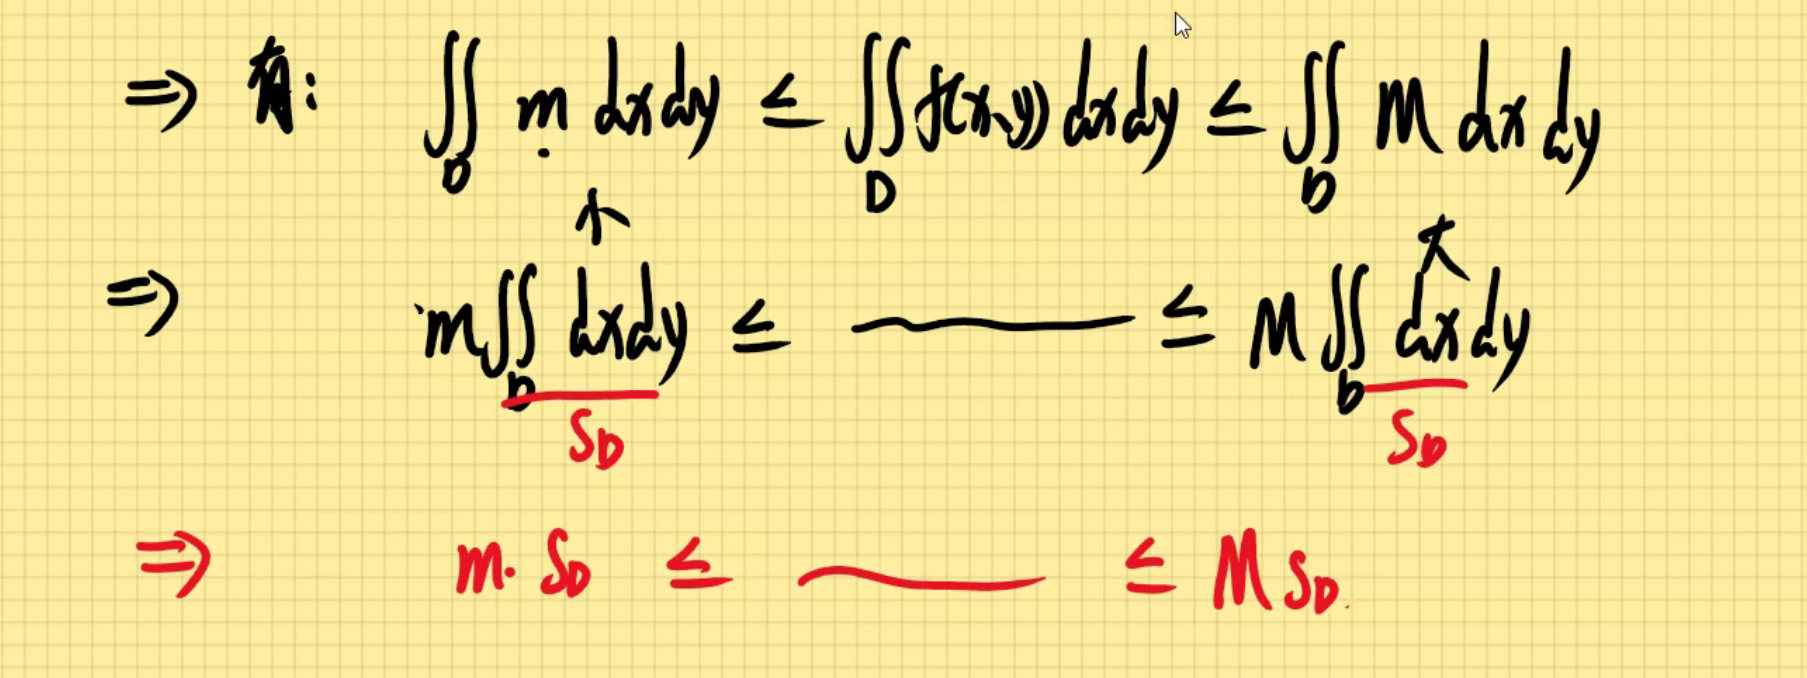 ⇒ 有: ∬_D m dxdy ≤ ∬_D f(x,y) dxdy ≤ ∬_D M dxdy
⇒ m∬_D dxdy ≤ ≤ M∬_D dxdy
S_D S_D
⇒ m·S_D ≤ ≤ M S_D.